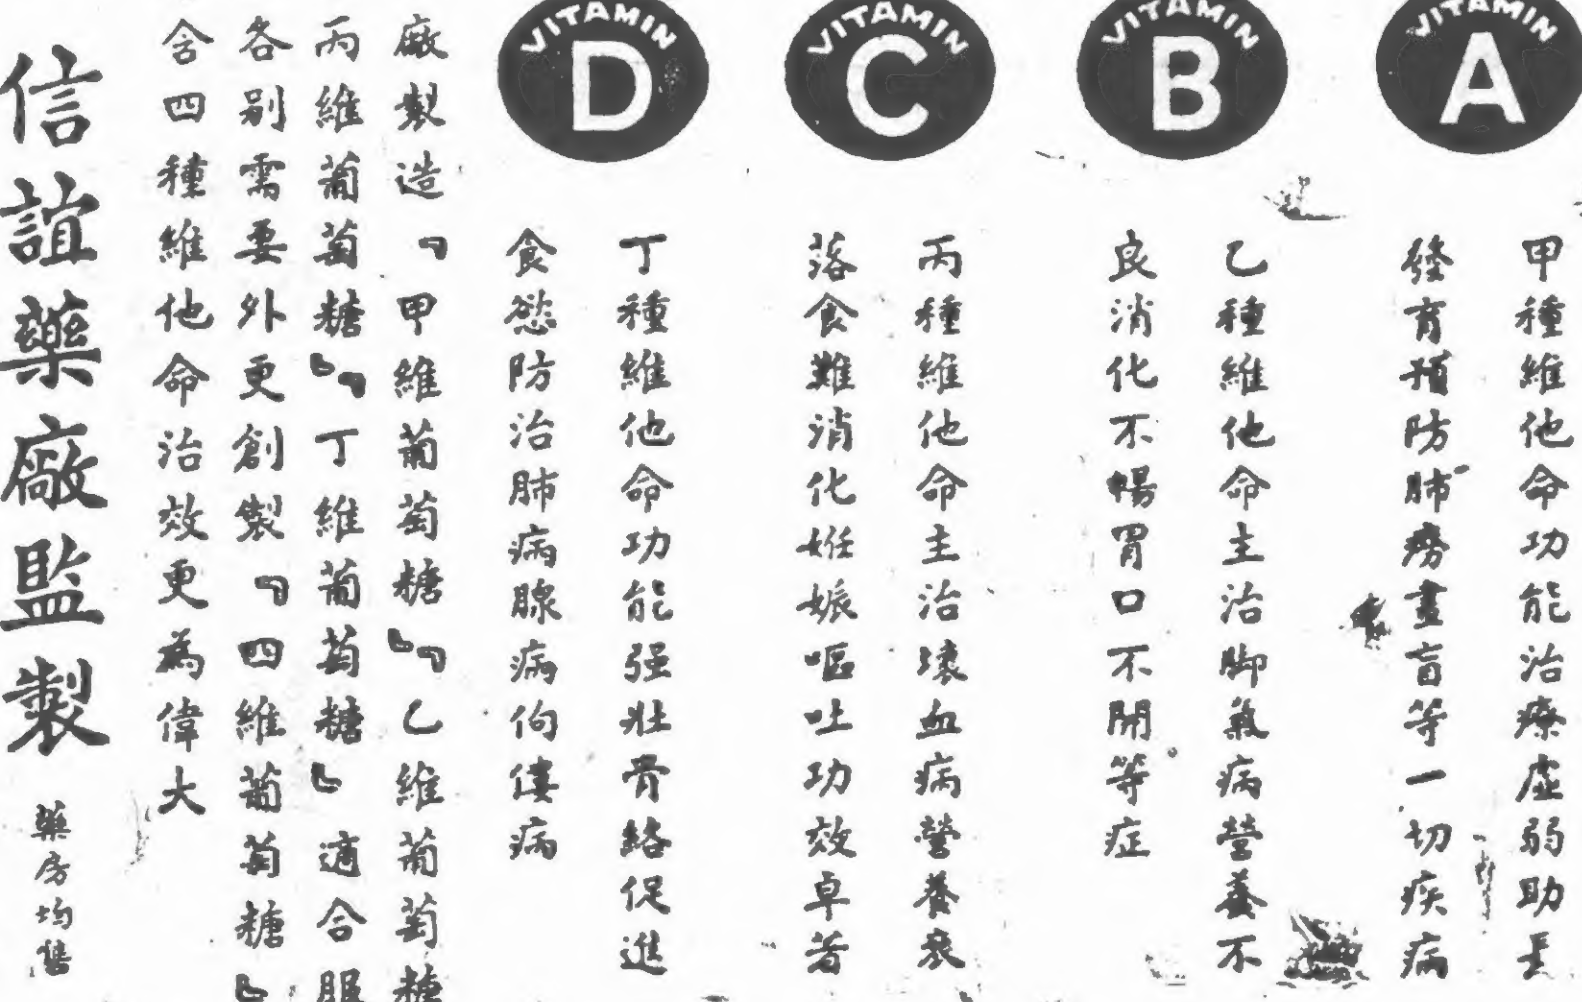 VITAMIN A
甲種維他命功能治療虛弱助長
發育預防肺癆晝盲等一切疾病
VITAMIN B
乙種維他命主治脚氣病營養不
良消化不暢胃口不開等症
VITAMIN C
丙種維他命主治壞血病營養衰
落食難消化姙娠嘔吐功效卓著
VITAMIN D
丁種維他命功能强壯骨絡促進
食慾防治肺病腺病佝僂病
廠製造『甲維葡萄糖』『乙維葡萄糖
丙維葡萄糖』『丁維葡萄糖』適合服
各別需要外更創製『四維葡萄糖』
含四種維他命治效更為偉大
信誼藥廠監製
藥房均售